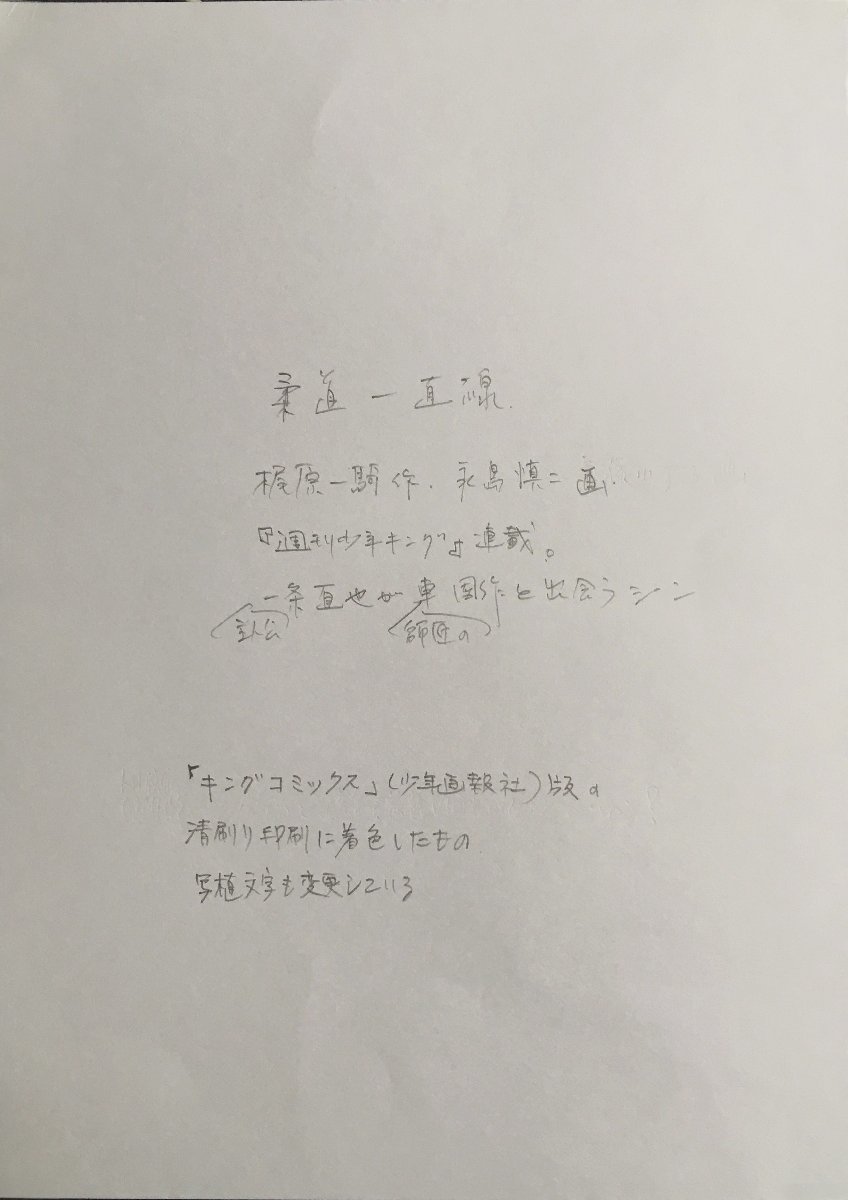 柔道一直線.
梶原一騎作、永島慎二画.
『週刊少年キング』連載。
一条直也が車周作と出会うシーン
主人公 師匠の
「キングコミックス」(少年画報社)版の
清刷り印刷に着色したもの
写植文字も変更している